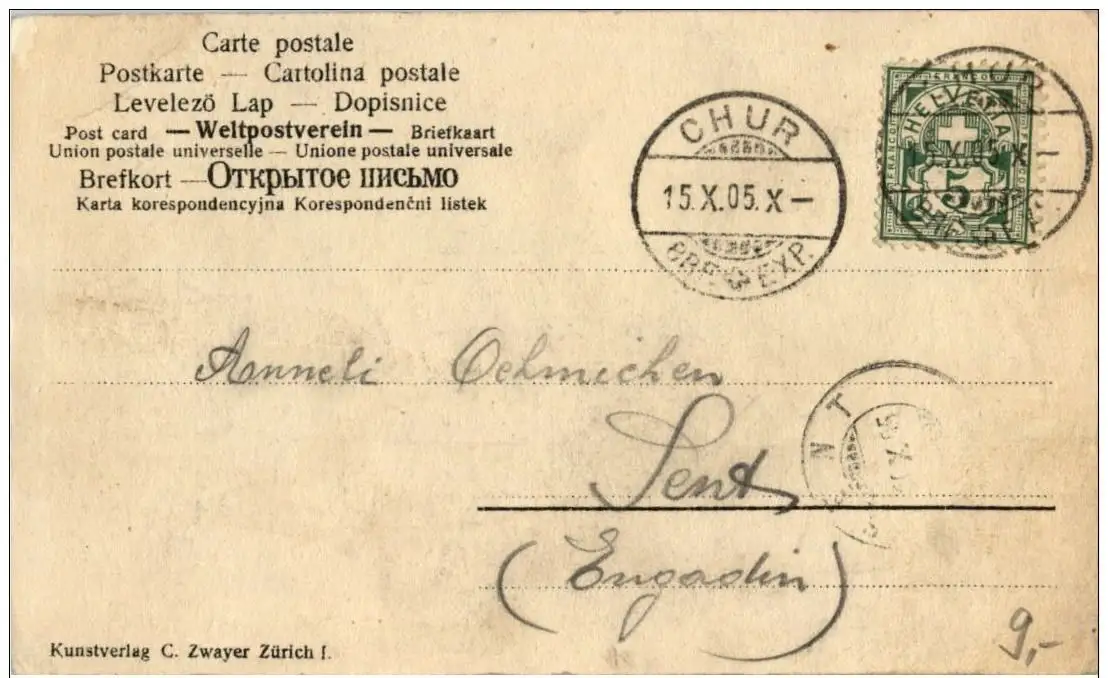 Carte postale
Postkarte — Cartolina postale
Levelező Lap — Dopisnice
Post card — Weltpostverein — Briefkaart
Union postale universelle — Unione postale universale
Brefkort — Открытое письмо
Karta korespondencyjna Korespondenčni listek
CHUR
15.X.05.X—
BRF. EXP.
FRANCO
HELVETIA
5
CHUR
15.X.05.X—
Anneli Oehmichen
Sent
(Engadin)
ENT
X.05
9,-
Kunstverlag C. Zwayer Zürich I.